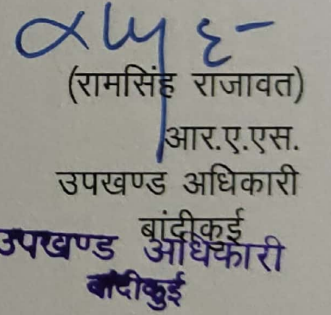 (रामसिंह राजावत)
आर.ए.एस.
उपखण्ड अधिकारी
बांदीकुई
उपखण्ड अधिकारी
बांदीकुई